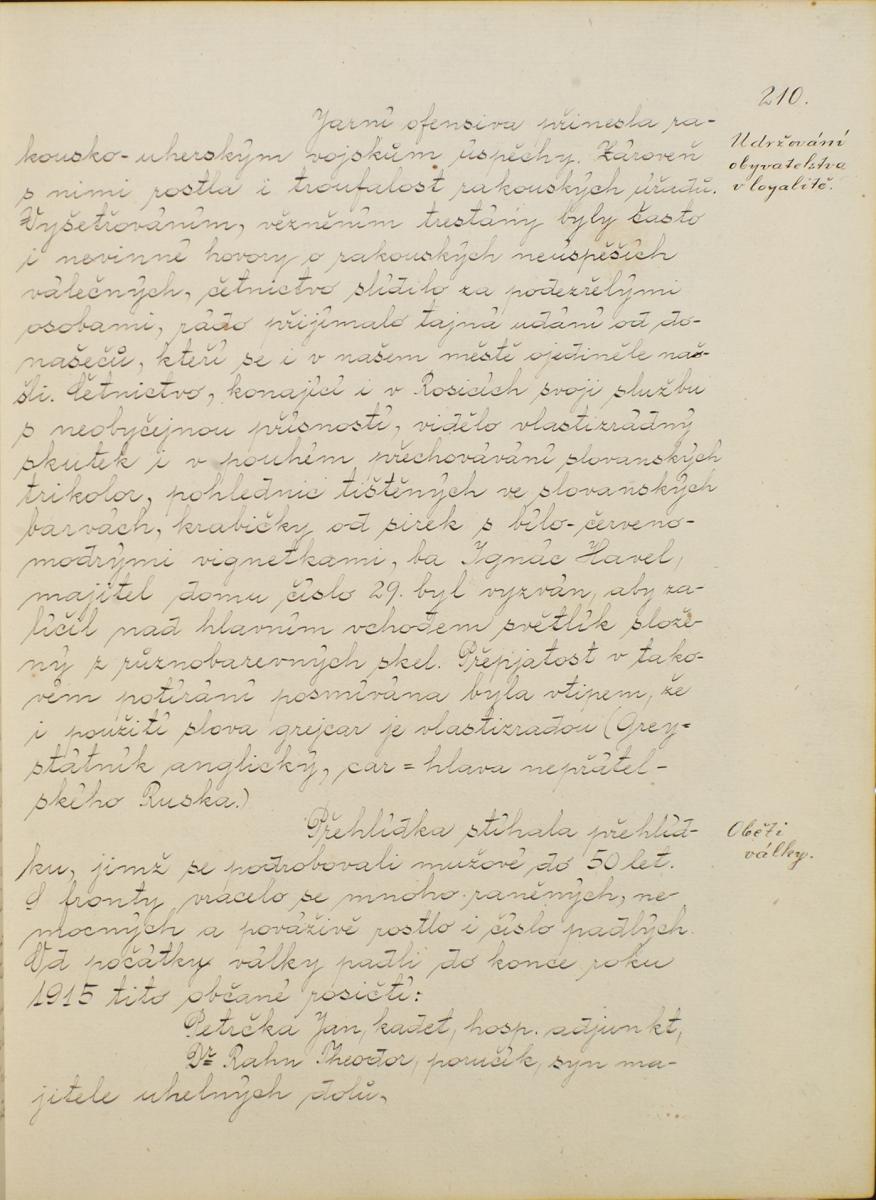 210.
Jarní ofensiva přinesla ra-
kousko-uherským vojskům úspěchy. Zároveň
s nimi rostla i troufalost rakouských úřadů.
Vyšetřováním, vězněním trestány byly často
i nevinné hovory o rakouských neúspěších
válečných, četnictvo slídilo za podezřelými
osobami, rádo přijímalo tajná udání od do-
našečů, kteří se i v našem městě ojediněle naš-
šli. Četnictvo, konající i v Rosicích svoji službu
s neobyčejnou přísností, vidělo vlastizrádný
skutek i v pouhém přechovávání slovanských
trikolor, pohlednic tištěných ve slovanských
barvách, krabičky od sirek s bílo-červeno-
modrými vignetkami, ba Ignác Havel,
majitel domu číslo 29. byl vyzván, aby za-
líčil nad hlavním vchodem světlík slože-
ný z různobarevných skel. Přepjatost v tako-
vém potírání posmívána byla vtipem, že
i použití slova grejcar je vlastizradou (Grey=
státník anglický, car = hlava nepřátel-
ského Ruska.)
Přehlídka stíhala přehlíd-
ku, jimž se podrobovali mužové do 50 let.
S fronty vracelo se mnoho raněných, ne-
mocných a povážlivě rostlo i číslo padlých.
Od počátku války padli do konce roku
1915 tito občané rosičtí:
Petrčka Jan, kadet, hosp. adjunkt,
Dr. Rahn Theodor, poručík, syn ma-
jitele uhelných dolů,
Udržování
obyvatelstva
v loyalitě.
Oběti
války.